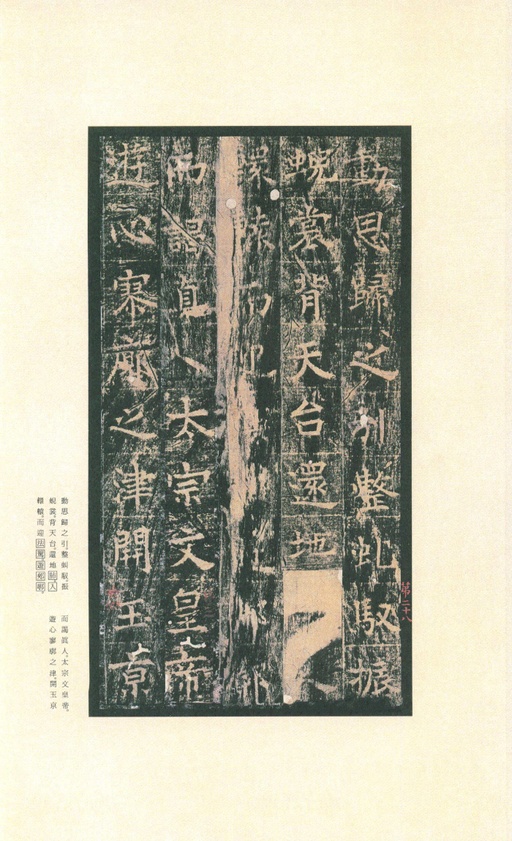 動思歸之引整虬馭振
蜺裳背天台還地
轅而迎
而謁真人太宗文皇帝
遊心寥廓之津開玉京
動思歸之引整虬馭振
蜺裳背天台還地
轅而迎
而謁真人太宗文皇帝
遊心寥廓之津開玉京